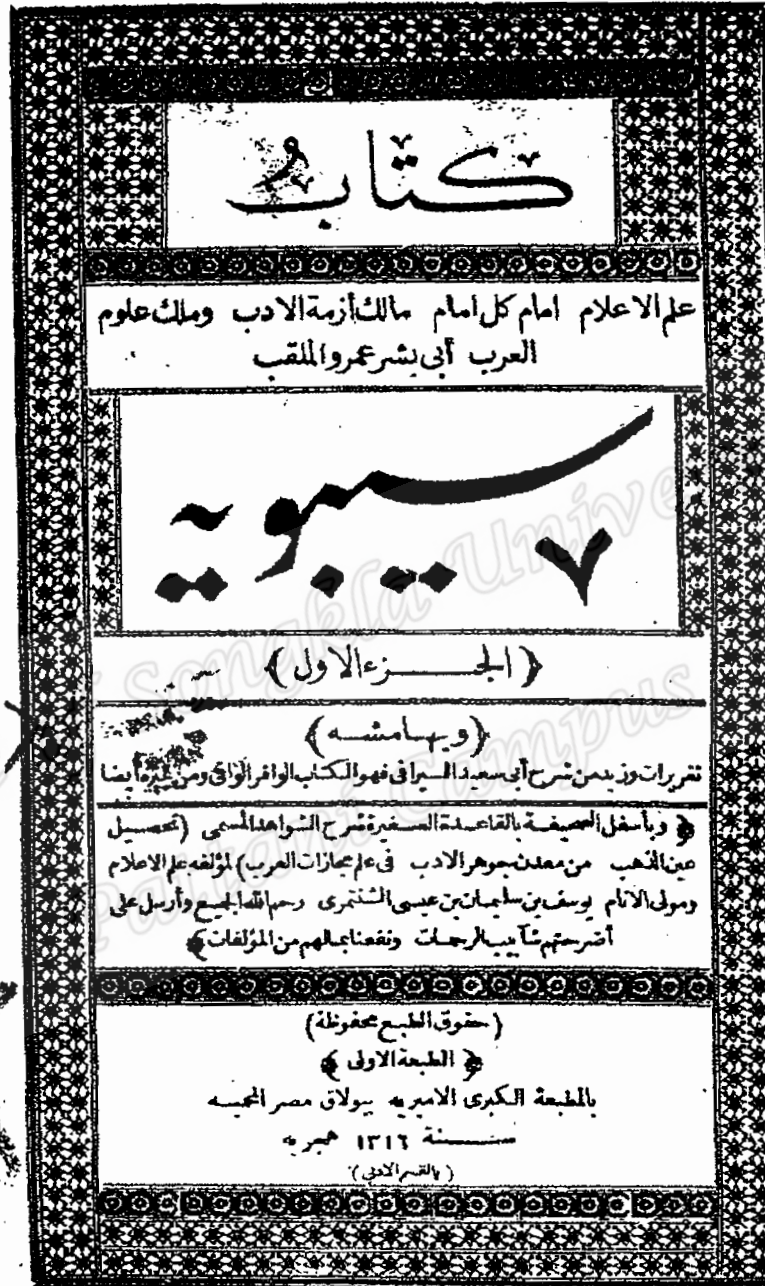 كتاب
علم الاعلام امام كل امام مالك أزمة الادب وملك علوم
العرب أبى بشر عمرو الملقب
سيبويه
﴿الجزء الاول﴾
﴿وبهامشه﴾
تقريرات وزبد من شرح أبى سعيد السيرافى فهو الكتاب الوافر الوافى ومن غيره أيضا
﴿وبأسفل الصحيفة بالقاعدة الصغيرة شرح الشواهد المسمى (تحصيل
عين الذهب من معدن جوهر الادب فى علم مجازات العرب) لمؤلفه علم الاعلام
ومولى الانام يوسف بن سليمان بن عيسى الشنتمرى رحم الله الجميع وأرسل على
أضرحتهم شآبيب الرحمات ونفعنا بمالهم من المؤلفات﴾
(حقوق الطبع محفوظة)
﴿الطبعة الاولى﴾
بالمطبعة الكبرى الاميريه ببولاق مصر المحميه
سنة ١٣١٦ هجريه
(بالقسم الادبى)
Songkla Unive
Pattani Campus